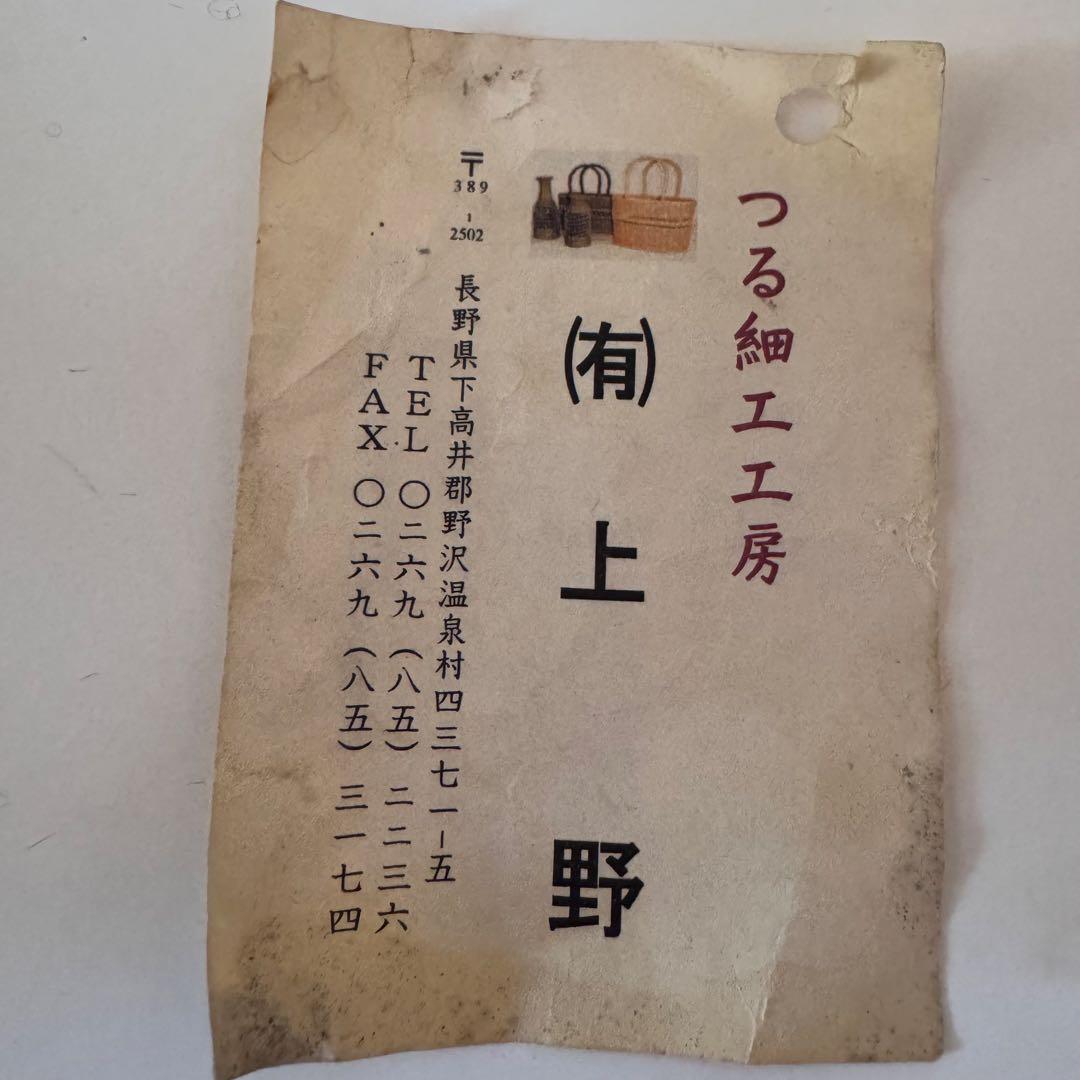 つる細工工房
㈲上野
〒389-2502
長野県下高井郡野沢温泉村四三七一-五
TEL 〇二六九(八五)二二三六
FAX 〇二六九(八五)三一七四